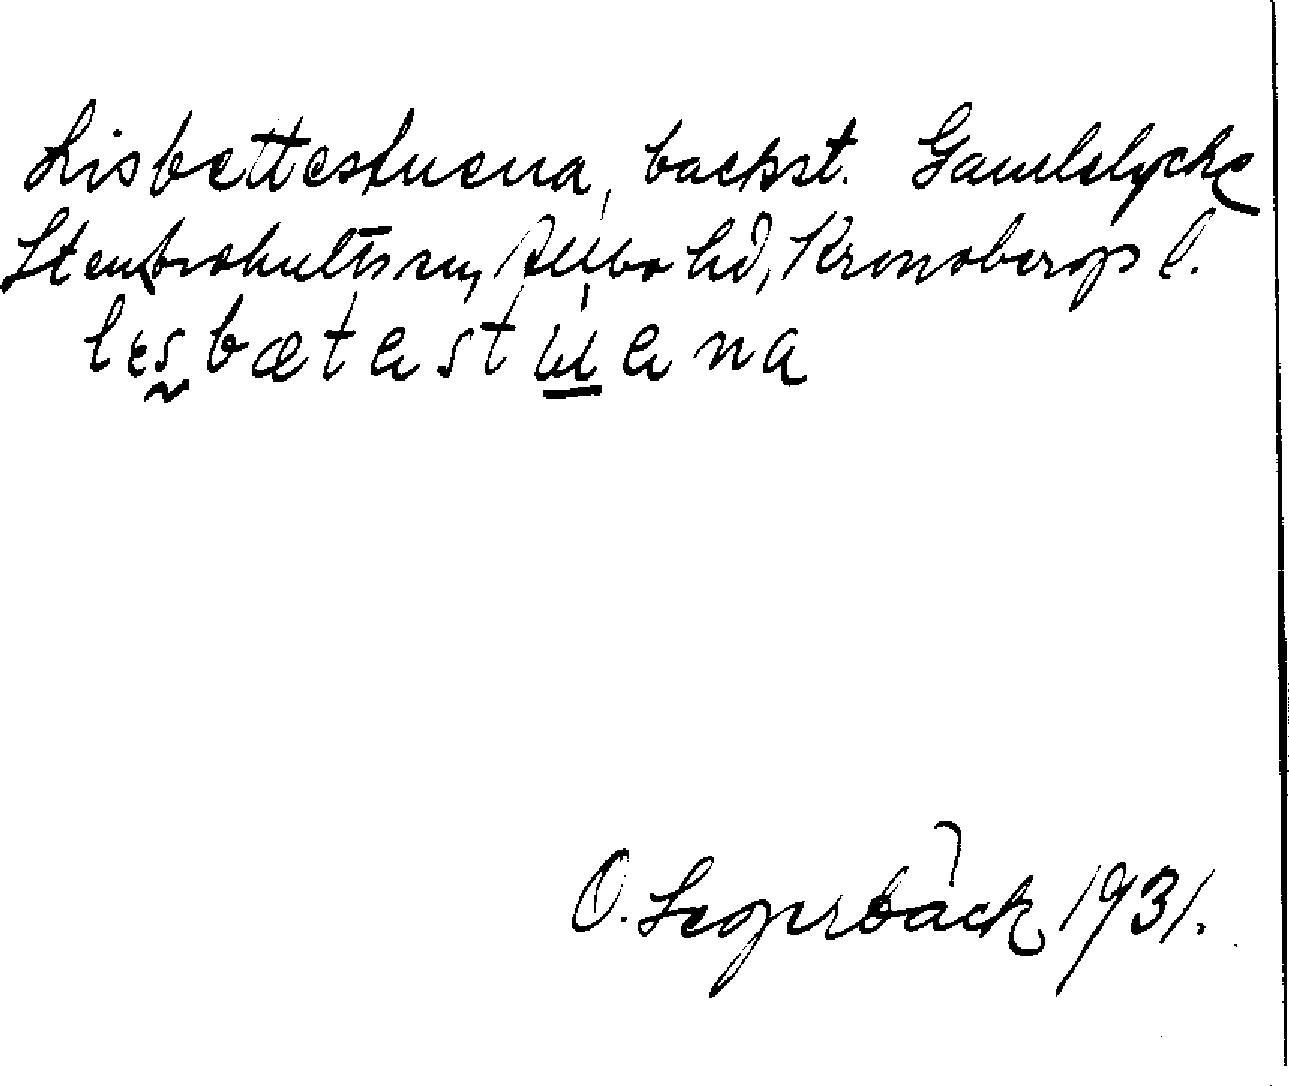 Lisbettestuena, backst. Gamlelycke
Stenbrohults sn, Allbo hd, Kronobergs l.
lesbætastuana
O. Segerbäck 1931.